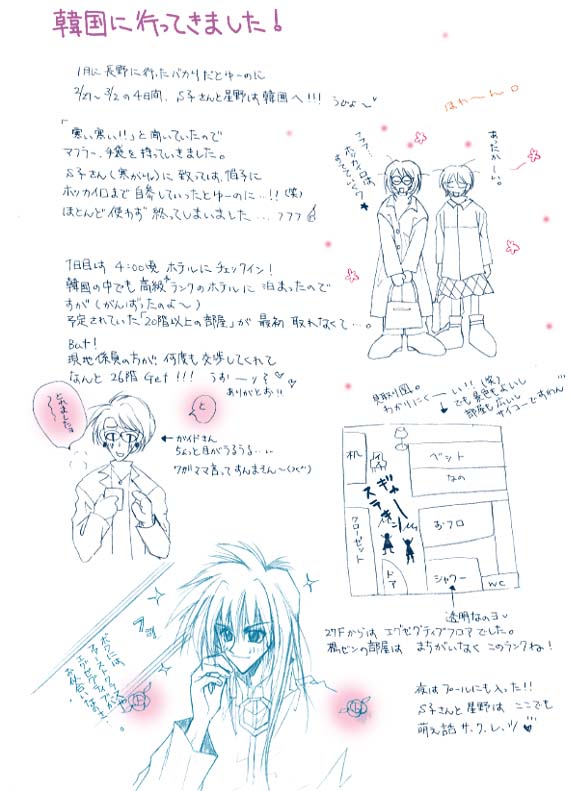 韓国に行ってきました!
1月に長野に行ったバカリだとゆーのに
2/27〜3/2の4日間、S子さんと星野は韓国へ!!!
ほわ〜ん。
「寒い寒い!!」と聞いていたので
マフラー、手袋を持っていきました。
S子さん(寒がり)に致っては、帽子に
ホッカイロまで自参していったとゆーのに…!!(笑)
ほとんど使わず終ってしまいました…フフフ
フフフ…
ホッカイロは
あたたかーい。
1日目は4:00頃ホテルにチェックイン!
韓国の中でも高級ランクのホテルに泊まったので
すが(がんばったのよ〜)
予定されていた「20階以上の部屋」が最初取れなくて…。
But!
現地係員の方が何度も交渉してくれて
なんと26階Get!!!
ありがとお!!
とれましたヨ
と
←ガイドさん
ちょっと目がうるうる…
ワガママ言ってすんませーん
見取り図。
わかりにくーい!!(笑)
でも景色もよいし
部屋もよいし
サイコーですわん
机
イス
ベット
なの
ぎゃー
ステキン
クローゼット
おフロ
ドア
シャワー
WC
透明なのヨ
27Fからはエグゼグティブフロアでした。
お似合いなのさ…。
夜はプールにも入った!!
S子さんと星野はここでも
萌え話サ・ク・レ・ツ